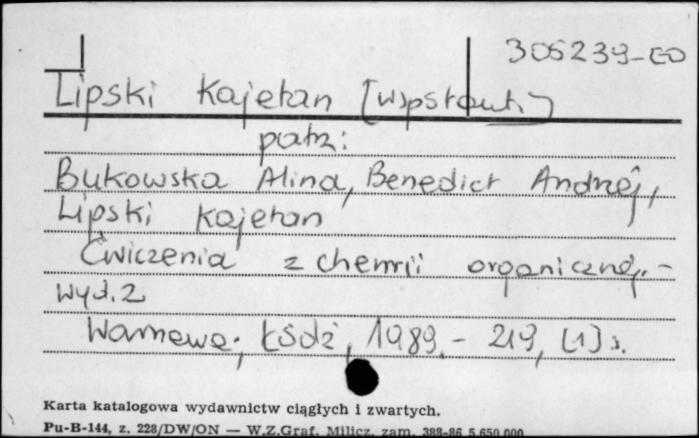 306239-CO
Lipski Kajetan [współaut.]
patrz:
Bukowska Alina, Benedict Andrzej,
Lipski Kajetan
Ćwiczenia z chemii organicznej. -
Wyd. 2
Warszawa; Łódź, 1989. - 219, [1] s.
Karta katalogowa wydawnictw ciągłych i zwartych.
Pu-B-144, z. 228/DW/ON — W.Z.Graf. Milicz, zam. 388-86 5.650.000